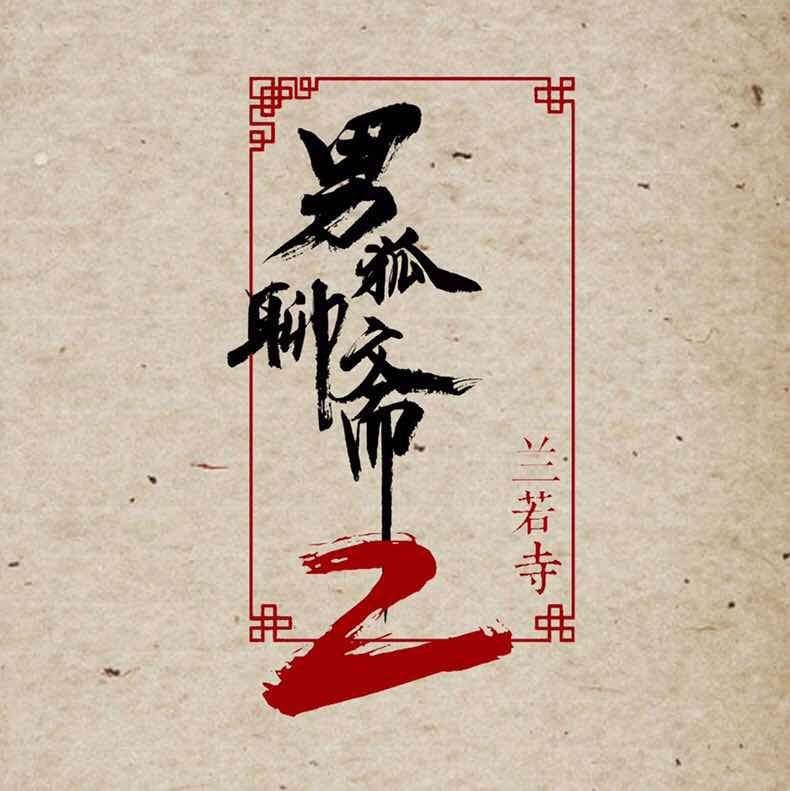 男狐聊斋
2
兰若寺